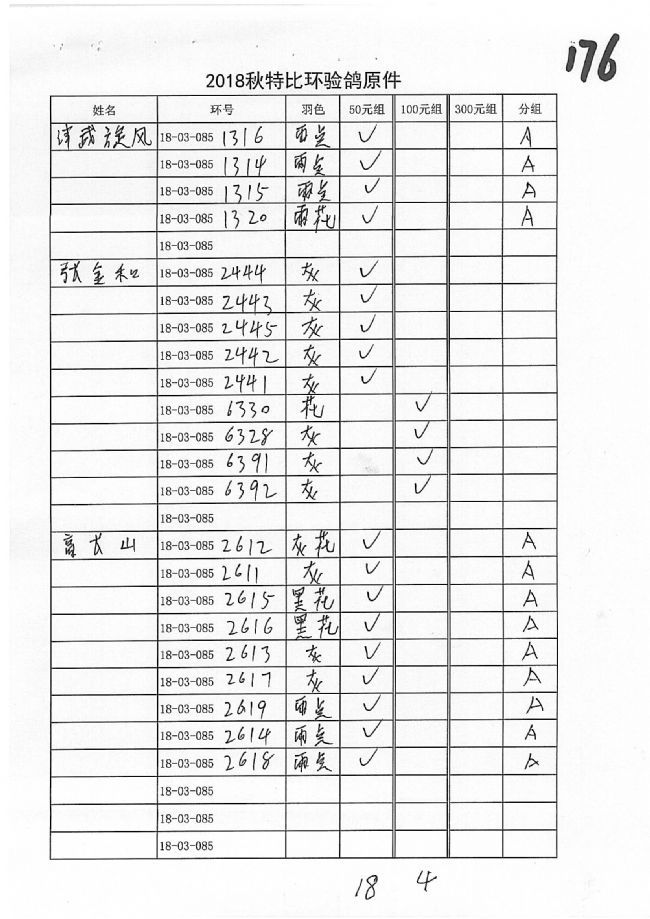 176
2018秋特比环验鸽原件
姓名 环号 羽色 50元组 100元组 300元组 分组
津武旋风 18-03-085 1316 雨点 ✓ A
18-03-085 1314 雨点 ✓ A
18-03-085 1315 雨点 ✓ A
18-03-085 1320 雨花 ✓ A
18-03-085
张金和 18-03-085 2444 灰 ✓
18-03-085 2443 灰 ✓
18-03-085 2445 灰 ✓
18-03-085 2442 灰 ✓
18-03-085 2441 灰 ✓
18-03-085 6330 花 ✓
18-03-085 6328 灰 ✓
18-03-085 6391 灰 ✓
18-03-085 6392 灰 ✓
18-03-085
高长山 18-03-085 2612 灰花 ✓ A
18-03-085 2611 灰 ✓ A
18-03-085 2615 黑花 ✓ A
18-03-085 2616 黑花 ✓ A
18-03-085 2613 灰 ✓ A
18-03-085 2617 灰 ✓ A
18-03-085 2619 雨点 ✓ A
18-03-085 2614 雨点 ✓ A
18-03-085 2618 雨点 ✓ A
18-03-085
18-03-085
18-03-085
18 4